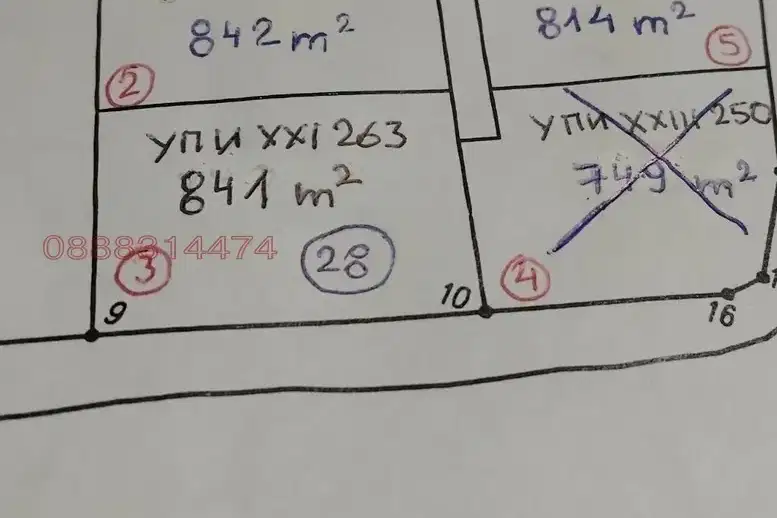 842 m²
814 m²
5
2
УПИ XXI 263
841 m²
УПИ XXIII 250
749 m²
0888314474
3
28
4
9
10
16